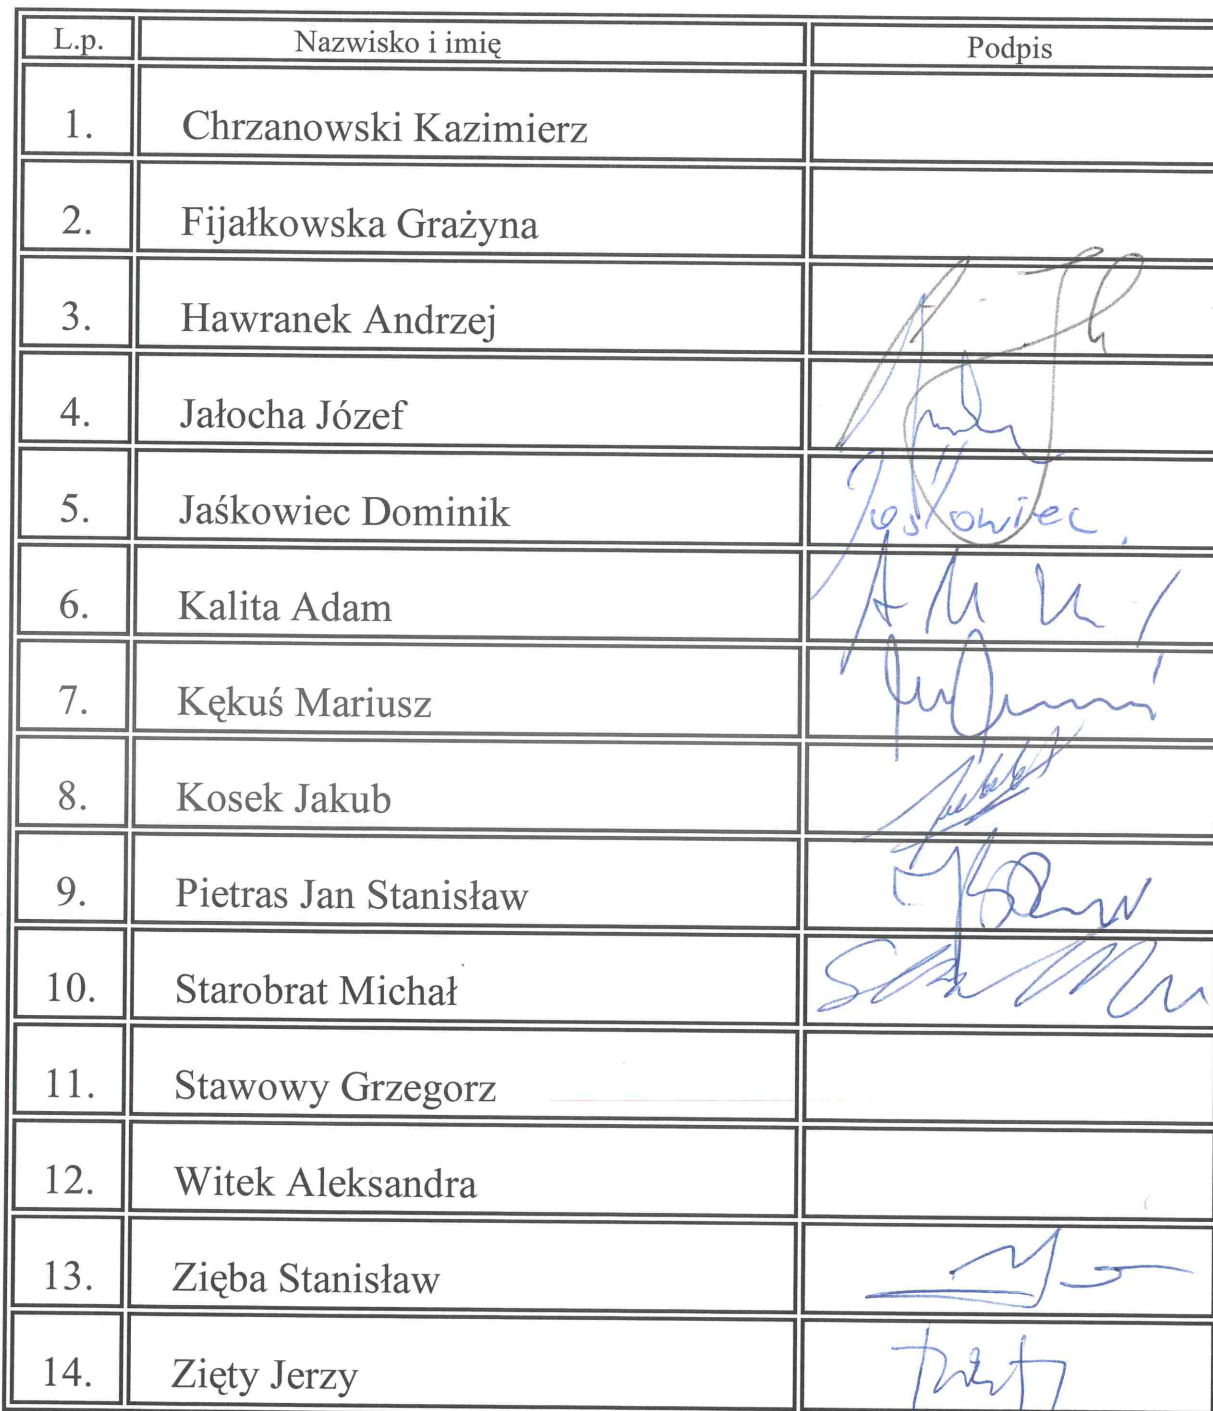 L.p. Nazwisko i imię Podpis
1. Chrzanowski Kazimierz
2. Fijałkowska Grażyna
3. Hawranek Andrzej
4. Jałocha Józef
5. Jaśkowiec Dominik Jaśkowiec.
6. Kalita Adam
7. Kękuś Mariusz
8. Kosek Jakub
9. Pietras Jan Stanisław
10. Starobrat Michał
11. Stawowy Grzegorz
12. Witek Aleksandra
13. Zięba Stanisław
14. Zięty Jerzy